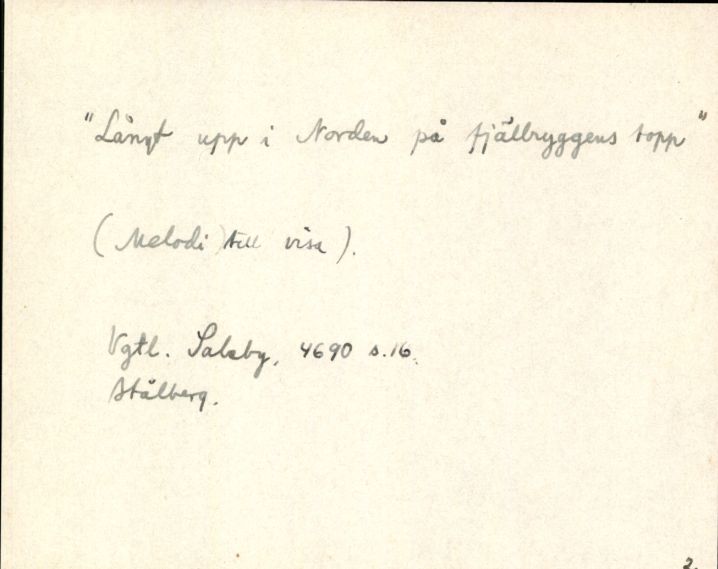 "Långt upp i Norden på fjällryggens topp"
(Melodi) till visa).
Vgtl. Saleby, 4690 s.16.
Stålberg.
2.